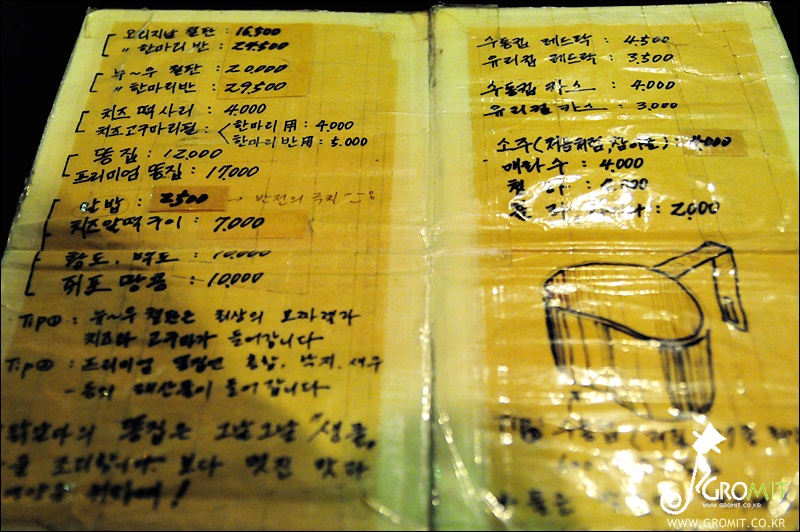 오리지날 철판 : 16,500
〃 한마리 반 : 24,500
뉴~우 철판 : 20,000
〃 한마리반 : 29,500
치즈 떡 사리 : 4,000
치즈고구마리필 : 한마리 用 : 4,000
한마리 반用 : 5,000
똥집 : 12,000
프리미엄 똥집 : 17,000
알밥 : 2,500 → 반전의 극치
치즈알떡구이 : 7,000
황도, 백도 : 10,000
쥐포 땅콩 : 10,000
Tip① : 뉴~우 철판은 최상의 모짜렐라
치즈와 고구마가 들어갑니다
Tip② : 프리미엄 똥집엔 홍합, 낙지, 새우
등의 해산물이 들어갑니다
똥집은 그날그날 "생물"
보다 멋진 맛과
위하여!
수동컵 레드락 : 4,500
유리컵 레드락 : 3,500
수동컵 카스 : 4,000
유리컵 카스 : 3,000
소주(처음처럼, 참이슬) : 4,000
매화수 : 4,000
: 2,000
TIP
GROMIT
WWW.GROMIT.CO.KR
WWW.GROMIT.CO.KR